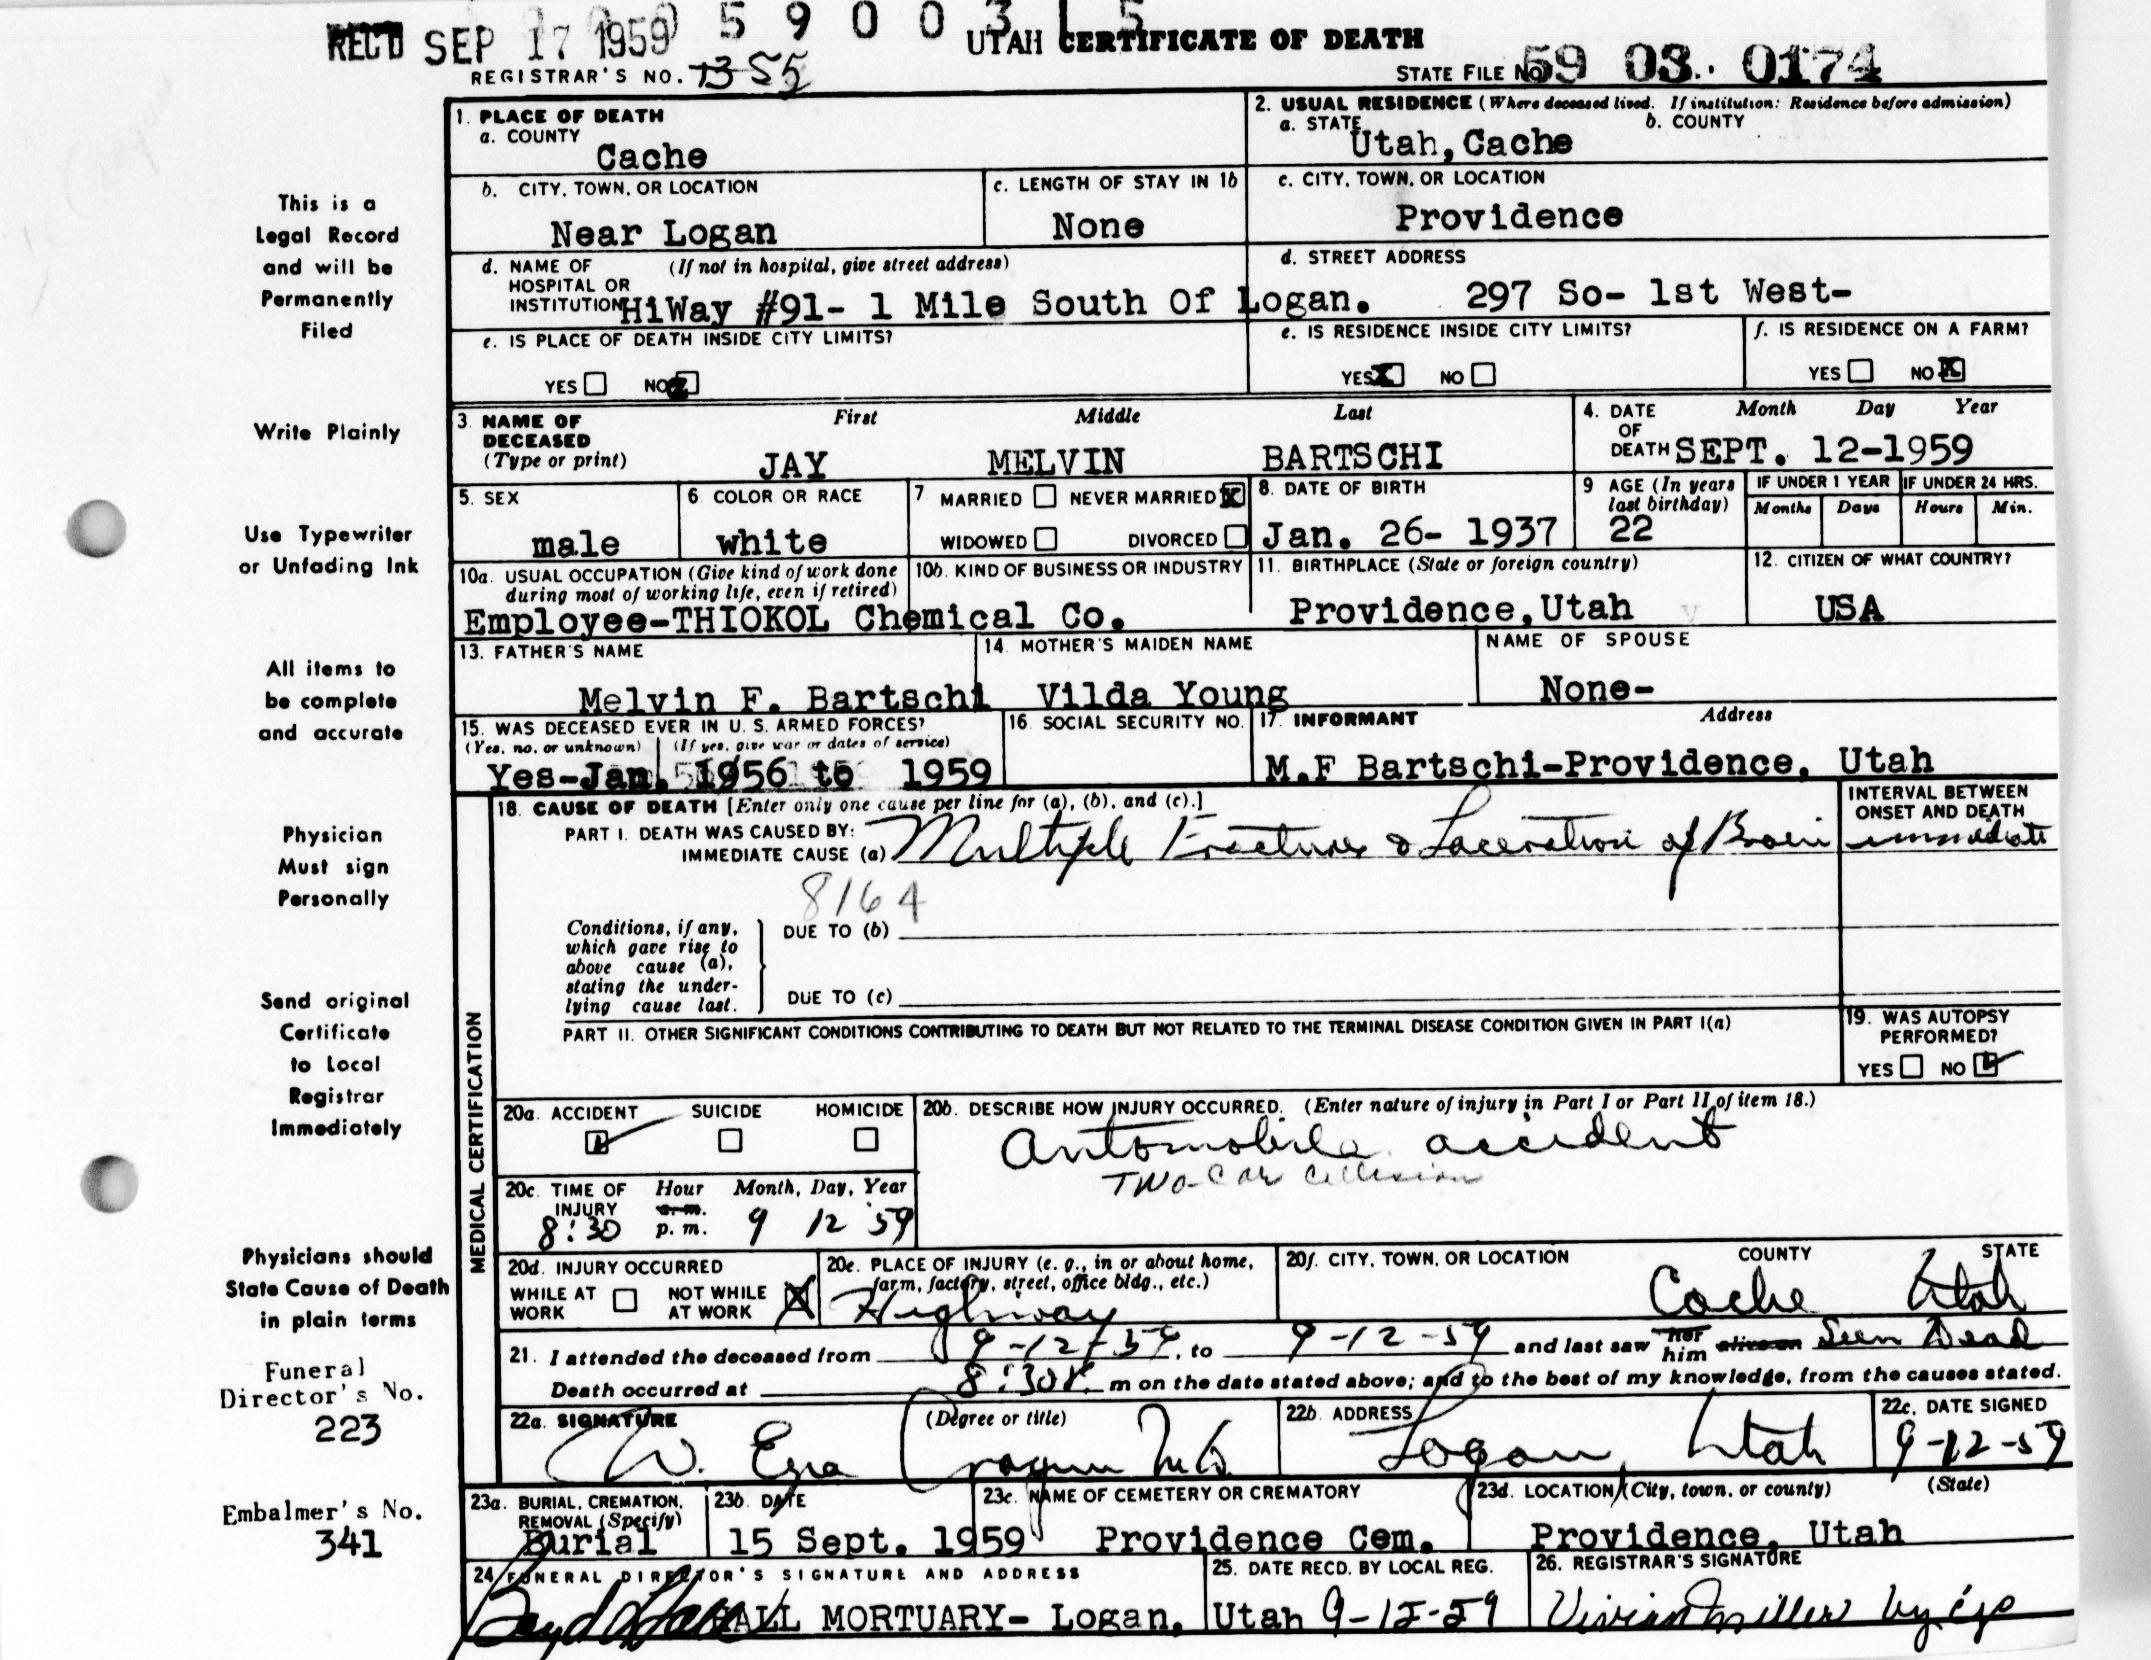 REC'D SEP 17 1959 5 9 0 0 3 1 5
UTAH CERTIFICATE OF DEATH
REGISTRAR'S NO. 1355
STATE FILE NO. 59 03 0174
1. PLACE OF DEATH
a. COUNTY
Cache
2. USUAL RESIDENCE (Where deceased lived. If institution: Residence before admission)
a. STATE b. COUNTY
Utah, Cache
b. CITY, TOWN, OR LOCATION
Near Logan
c. LENGTH OF STAY IN 1b
None
c. CITY, TOWN, OR LOCATION
Providence
d. NAME OF (If not in hospital, give street address)
HOSPITAL OR
INSTITUTION HiWay #91- 1 Mile South Of Logan.
d. STREET ADDRESS
297 So- 1st West-
e. IS PLACE OF DEATH INSIDE CITY LIMITS?
YES NO X
e. IS RESIDENCE INSIDE CITY LIMITS?
YES X NO
f. IS RESIDENCE ON A FARM?
YES NO X
3. NAME OF
DECEASED
(Type or print)
First Middle Last
JAY MELVIN BARTSCHI
4. DATE Month Day Year
OF
DEATH SEPT. 12-1959
5. SEX
male
6. COLOR OR RACE
white
7 MARRIED NEVER MARRIED X
WIDOWED DIVORCED
8. DATE OF BIRTH
Jan. 26- 1937
9 AGE (In years
last birthday)
22
IF UNDER 1 YEAR IF UNDER 24 HRS.
Months Days Hours Min.
10a. USUAL OCCUPATION (Give kind of work done
during most of working life, even if retired)
10b. KIND OF BUSINESS OR INDUSTRY
Employee-THIOKOL Chemical Co.
11. BIRTHPLACE (State or foreign country)
Providence, Utah
12. CITIZEN OF WHAT COUNTRY?
USA
13. FATHER'S NAME
Melvin F. Bartschi
14. MOTHER'S MAIDEN NAME
Vilda Young
NAME OF SPOUSE
None-
15. WAS DECEASED EVER IN U. S. ARMED FORCES?
(Yes, no, or unknown) (If yes, give war or dates of service)
Yes-Jan. 1956 to 1959
16. SOCIAL SECURITY NO.
17. INFORMANT Address
M.F Bartschi-Providence, Utah
18. CAUSE OF DEATH [Enter only one cause per line for (a), (b), and (c).]
PART I. DEATH WAS CAUSED BY:
IMMEDIATE CAUSE (a) Multiple Fractures & Laceration of Brain
INTERVAL BETWEEN
ONSET AND DEATH
immediate
8164
Conditions, if any,
which gave rise to
above cause (a),
stating the under-
lying cause last.
DUE TO (b)
DUE TO (c)
PART II. OTHER SIGNIFICANT CONDITIONS CONTRIBUTING TO DEATH BUT NOT RELATED TO THE TERMINAL DISEASE CONDITION GIVEN IN PART I(a)
19. WAS AUTOPSY
PERFORMED?
YES NO
MEDICAL CERTIFICATION
20a. ACCIDENT SUICIDE HOMICIDE
20b. DESCRIBE HOW INJURY OCCURRED. (Enter nature of injury in Part I or Part II of item 18.)
Automobile accident
Two-Car Collision
20c. TIME OF Hour Month, Day, Year
INJURY a. m.
8:30 p. m. 9 12 '59
20d. INJURY OCCURRED
WHILE AT WORK NOT WHILE AT WORK X
20e. PLACE OF INJURY (e. g., in or about home,
farm, factory, street, office bldg., etc.)
Highway
20f. CITY, TOWN, OR LOCATION COUNTY STATE
Cache Utah
21. I attended the deceased from 9-12-59, to 9-12-59 and last saw her him alive on Seen Dead
Death occurred at 8:30P. m on the date stated above; and to the best of my knowledge, from the causes stated.
22a. SIGNATURE (Degree or title)
W. Ezra Cragun M.D.
22b. ADDRESS
Logan, Utah
22c. DATE SIGNED
9-12-59
23a. BURIAL, CREMATION,
REMOVAL (Specify)
Burial
23b. DATE
15 Sept. 1959
23c. NAME OF CEMETERY OR CREMATORY
Providence Cem.
23d. LOCATION (City, town, or county) (State)
Providence, Utah
24. FUNERAL DIRECTOR'S SIGNATURE AND ADDRESS
HALL MORTUARY- Logan, Utah
25. DATE RECD. BY LOCAL REG.
9-15-59
26. REGISTRAR'S SIGNATURE
Vivian Miller by
This is a
Legal Record
and will be
Permanently
Filed
Write Plainly
Use Typewriter
or Unfading Ink
All items to
be complete
and accurate
Physician
Must sign
Personally
Send original
Certificate
to Local
Registrar
Immediately
Physicians should
State Cause of Death
in plain terms
Funeral
Director's No.
223
Embalmer's No.
341